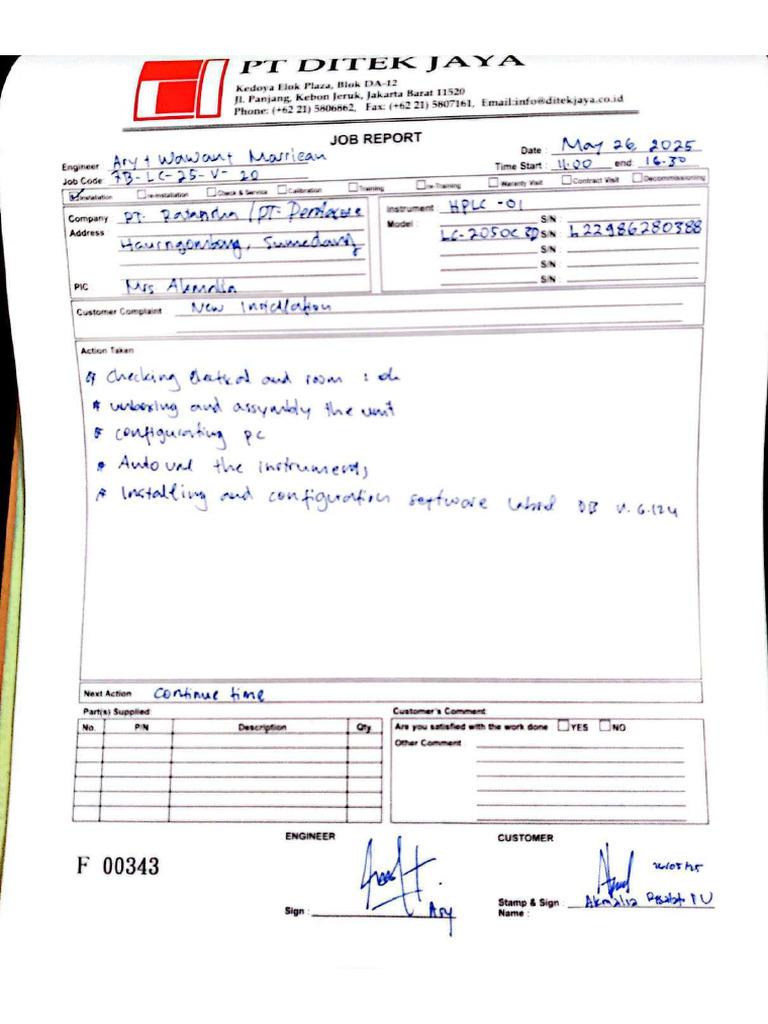 PT DITEK JAYA
Kedoya Elok Plaza, Blok DA-12
Jl. Panjang, Kebon Jeruk, Jakarta Barat 11520
Phone: (+62 21) 5806862, Fax: (+62 21) 5807161, Email:info@ditekjaya.co.id
JOB REPORT
Engineer Ary + Wawan Date : May 26, 2025
Job Code 7B-LC-25-V-20 Time Start : 11.00 end: 16.30
Installation re-installation Check & Service Calibration Training re-Training Warranty Visit Contract Visit Decommissioning
Company PT. / PT. Instrument HPLC -01
Address Haurngombong, Sumedang Model : S/N :
LC-2050C 3D S/N : L22986280388
S/N :
S/N :
PIC Mrs Akmalia S/N :
Customer Complaint New Installation
Action Taken
* Checking electrical and room : ok
* unboxing and assembly the unit
* configurating pc
* Autoval the instruments
* Installing and configuration software DB v. 6.124
Next Action Continue time
Part(s) Supplied: Customer's Comment:
No. P/N Description Qty Are you satisfied with the work done YES NO
Other Comment :
ENGINEER CUSTOMER
F 00343
26/05/25
Sign : Ary Stamp & Sign : Akmalia
Name :